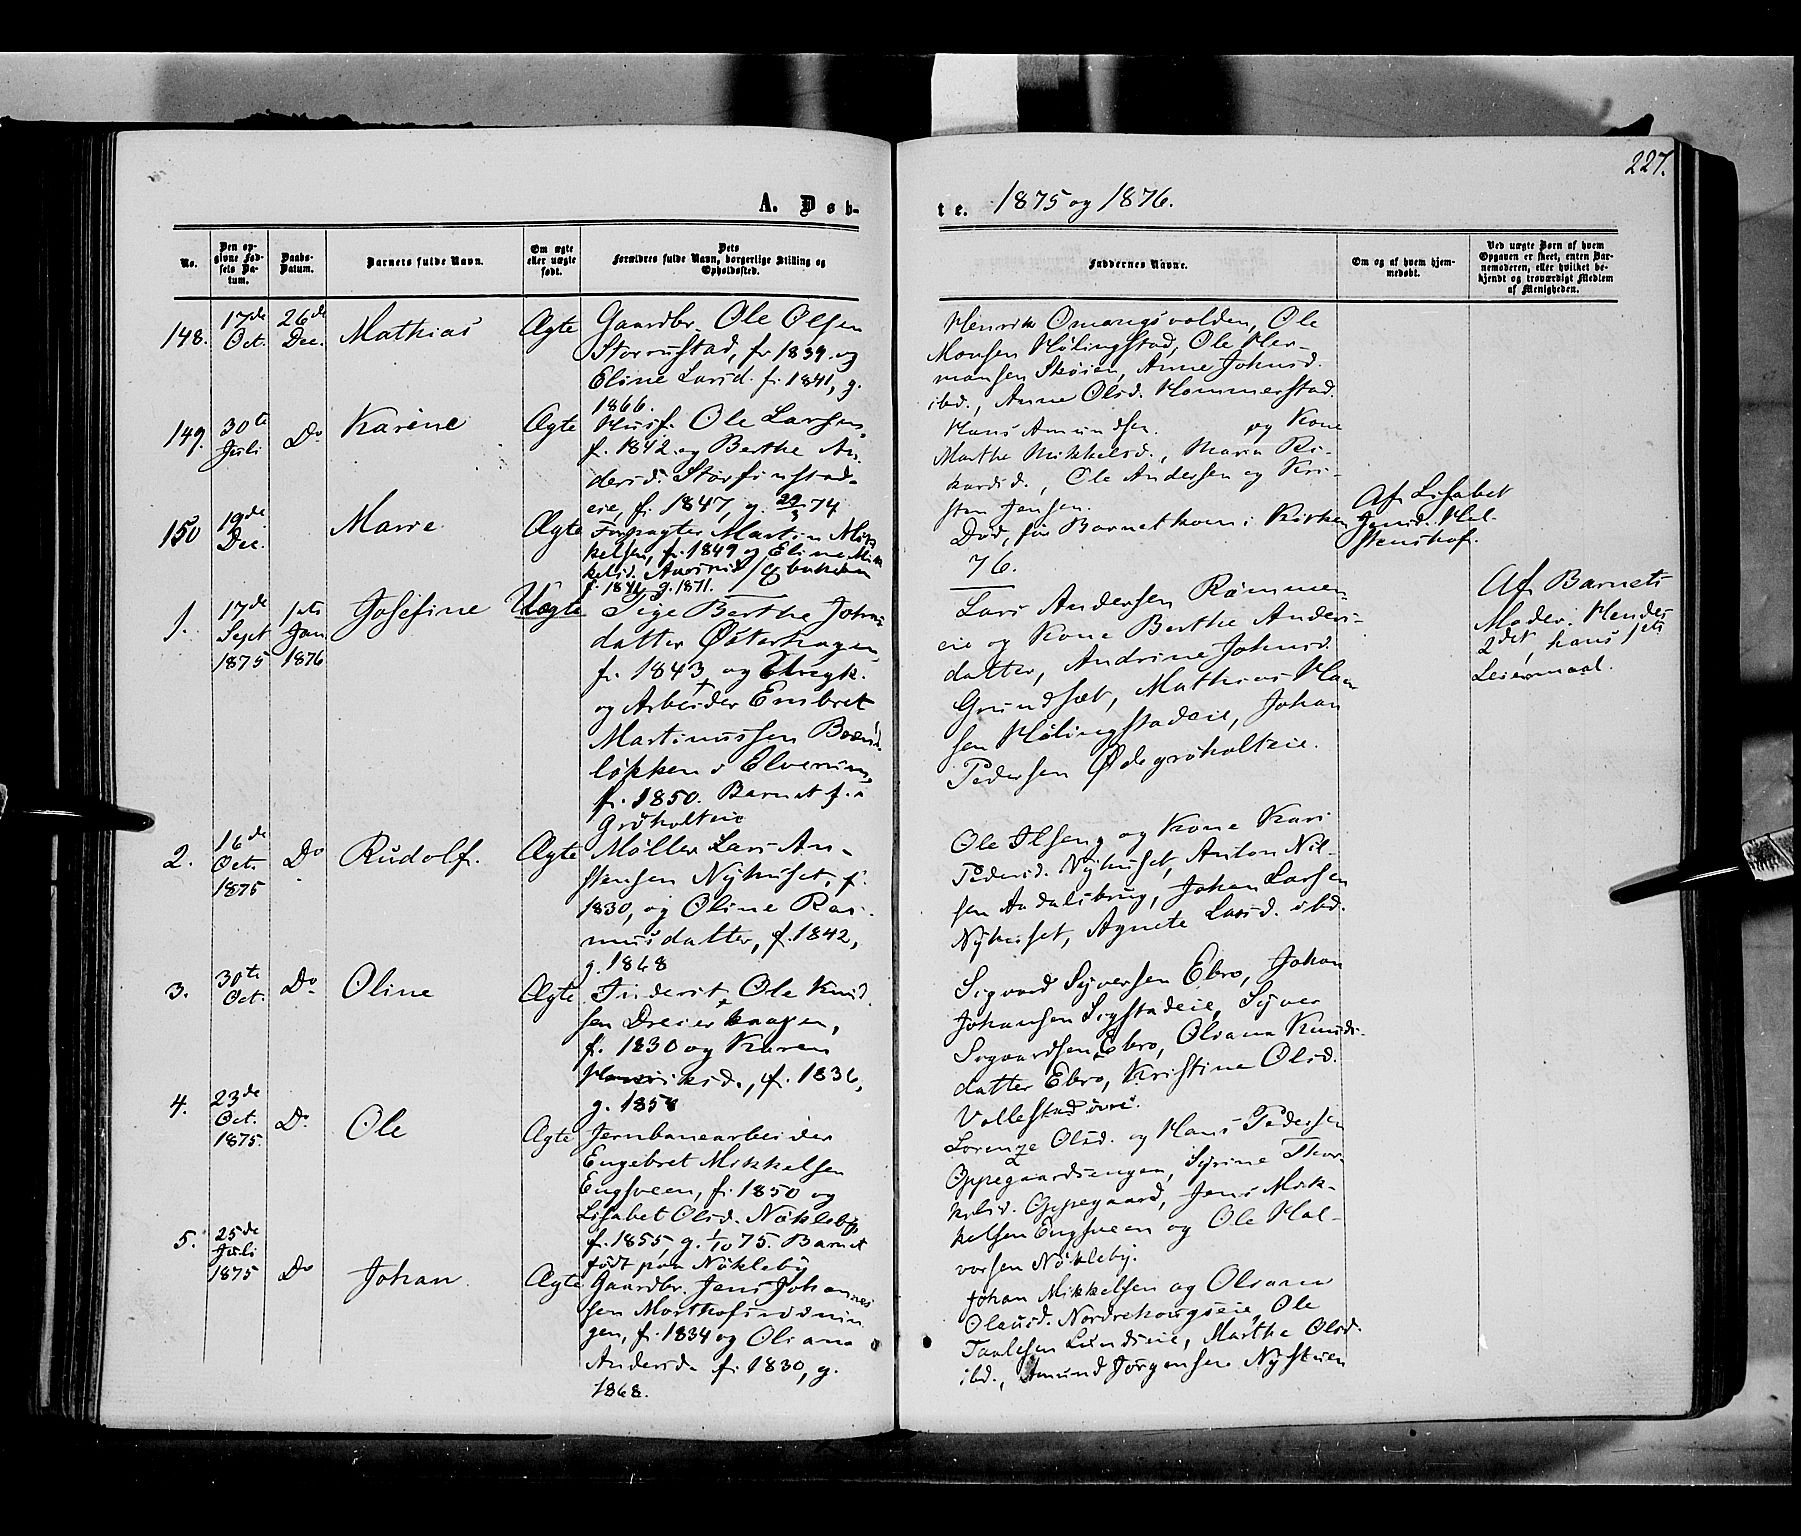 227.
A. Døb-
te. 1875 og 1876.
No.
Den op-
givne Fød-
sels Da-
tum.
Daabs-
Datum.
Barnets fulde Navn.
Om ægte
eller uægte
født.
Dets
Forældres fulde Navn, borgerlige Stilling og
Opholdssted.
Faddernes Navne.
Om og af hvem hjem-
medøbt.
Ved uægte Børn af hvem
Opgaven er skeet, enten Bar-
nemoderen, eller hvilket be-
kjendt og troværdigt Medlem
af Menigheden.
148.
17de
Oct.
26de
Dec.
Mathias
Ægte
Gaardbr. Ole Olsen
Storrustad, f. 1839. og
Eline Larsd. f. 1841, g.
1866.
Henrik Omangsvolden, Ole
Monsen Hølingstad, Ole Her-
mansen Skøien, Anne Johnsd.
ibd., Anne Olsd. Hommerstad.
149.
30te
Juli
Do
Karine
Ægte
Husf. Ole Larsen,
f. 1842. og Berthe An-
dersd. Storfinstad-
eie, f. 1847, g. 29/3 74
Hans Amundsen. og Kone
Marthe Mikkelsd., Maria Ri-
kardsd., Ole Andersen og Kri-
sten Jensen.
150
19de
Dec.
Marie
Ægte
Forpagter Martin Mik-
kelsen, f. 1849 og Eline Mik
kelsd.
g. 1871.
Død, før Barnet kom i Kirken
Af Lisabet
Jensd. Hel-
stenshof.
76.
1.
17de
Sept
1875
1ste
Jan.
1876
Josefine
Uægte
Pige Berthe Johns
datter Østerhagen,
f. 1843 og Ungk.
og Arbeider Embret
Martinussen Brænd
løkken i Elverum,
f. 1850. Barnet f. i
Grøholteie
Lars Andersen Rømmen-
eie og Kone Berthe Anders-
datter, Andrine Johnsd.
Grundset, Mathias Han
sen Hølingstadeie, Johan
Pedersen Ødegrøholteie.
Af Barnets
Moder. Hendes
2det, hans 1ste
Leiermaal.
2.
16de
Oct.
1875
Do
Rudolf.
Ægte
Møller Lars An-
stensen Nyhuset, f.
1830, og Oline Ras-
musdatter, f. 1842,
g. 1868
Ole Olseng og Kone Kari
Pedersd. Nyhuset, Anton Nil-
sen Aadalsbrug, Johan Larsen
Nyhuset, Agnete Larsd. ibd.
3.
30te
Oct.
Do
Oline
Ægte
Inderst Ole Knud
sen Dreierhaagen,
f. 1830 og Karen
Henriksd., f. 1836,
g. 1858
Sigvard Syversen Ebro, Johan
Johansen Sogstadeie, Syver
Sigvardsen Ebro, Oliana Knuds-
datter Ebro, Kristine Olsd.
Vollestad øvre.
4.
23de
Oct.
1875.
Do.
Ole
Ægte
Jernbanearbeider
Engebret Mikkelsen
Engsveen, f. 1850 og
Lisabet Olsd. Nøkleby,
f. 1855, g. 1/10 75. Barnet
født paa Nøkleby
Lorenze Olsd. og Hans Pedersen
Oppegaardsengen, Syrine Thor-
kelsd. Oppegaard, Jens Mik-
kelsen Engsveen og Ole Hal-
vorsen Nøkleby.
5.
25de
Juli
1875
Do
Johan
Ægte
Gaardbr. Jens Johannes
sen Morthofsrødnin
gen, f. 1834 og Oliana
Andersd. f. 1830, g.
1868.
Johan Mikkelsen og Oliana
Olausd. Nordrehougseie, Ole
Paulsen Lundseie, Marthe Olsd.
ibd., Amund Jørgensen Nystuen